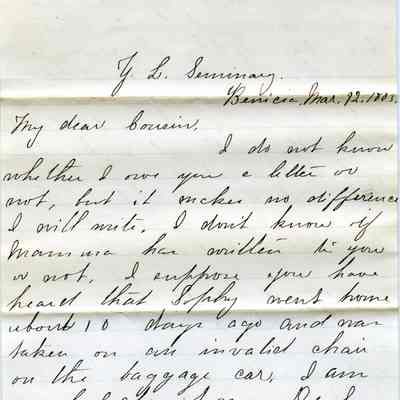 Y. L. Seminary.
Benicia, Mar. 12. 1883.
My dear Cousin,
I do not know
whether I owe you a letter or
not, but it makes no difference
I will write. I don't know if
Mamma has written to you
or not. I suppose you have
heard that Sophy went home
about 10 days ago and was
taken on an invalid chair
on the baggage car, I am